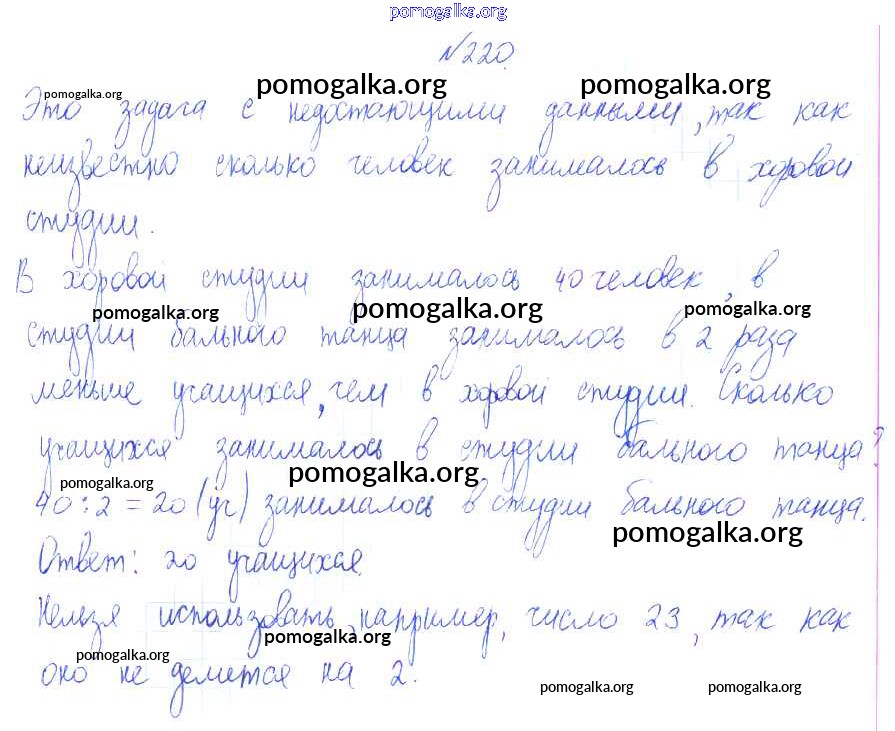 pomogalka.org
№220.
pomogalka.org pomogalka.org pomogalka.org
Это задача с недостающими данными, так как
неизвестно сколько человек занималось в хоровой
студии.
В хоровой студии занималось 40 человек, в
pomogalka.org pomogalka.org pomogalka.org
студии бального танца занималось в 2 раза
меньше учащихся, чем в хоровой студии. Сколько
учащихся занималось в студии бального танца?
pomogalka.org pomogalka.org
40:2=20 (уч) занималось в студии бального танца.
pomogalka.org
Ответ: 20 учащихся.
Нельзя использовать, например, число 23, так как
pomogalka.org
pomogalka.org
оно не делится на 2.
pomogalka.org pomogalka.org